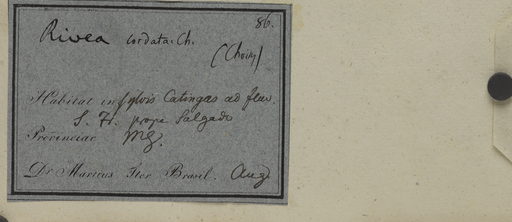 86.
Rivea cordata. Ch.
(Choisy)
Habitat in sylvis Catingas ad fluv.
S. Fr. prope Salgado
Provinciae MG.
Dr. Martius Iter Brasil. Aug.